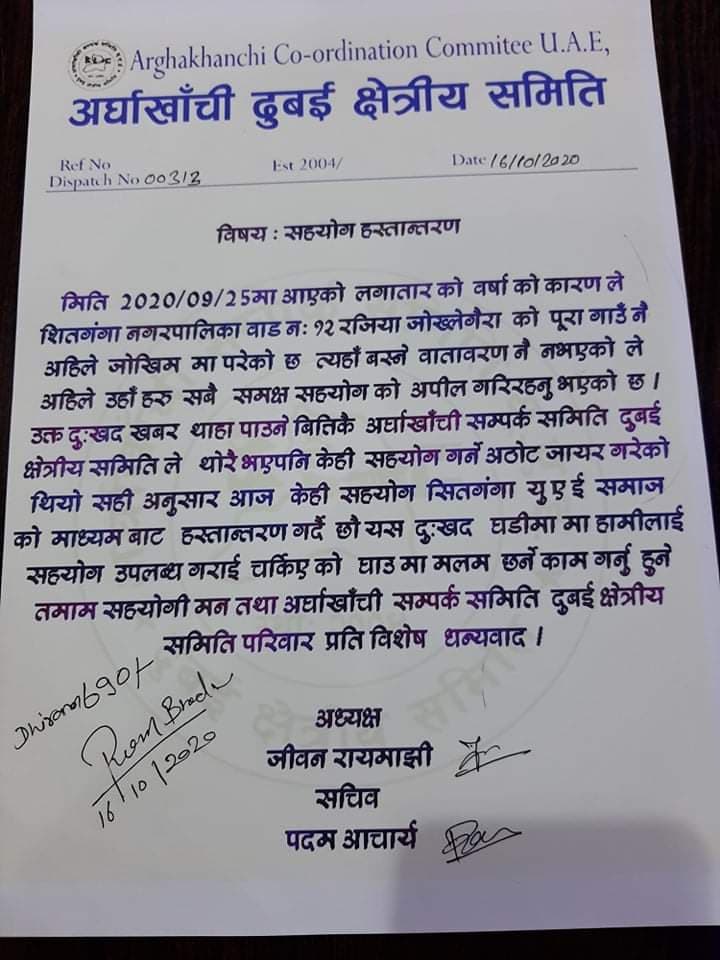 Arghakhanchi Co-ordination Commitee U.A.E,
अर्घाखाँची दुबई क्षेत्रीय समिति
Ref No
Est 2004/
Date 16/10/2020
Dispatch No 00313
विषय : सहयोग हस्तान्तरण
मिति 2020/09/25मा आएको लगातार को वर्षा को कारण ले
शितगंगा नगरपालिका वाड न: १२ रजिया जोख्लेगैरा को पूरा गाउँ नै
अहिले जोखिम मा परेको छ त्यहाँ बस्ने वातावरण नै नभएको ले
अहिले उहाँ हरु सबै समक्ष सहयोग को अपील गरिरहनु भएको छ ।
उक्त दुःखद खबर थाहा पाउने बितिकै अर्घाखाँची सम्पर्क समिति दुबई
क्षेत्रीय समिति ले थोरै भएपनि केही सहयोग गर्ने अठोट जायर गरेको
थियो सही अनुसार आज केही सहयोग सितगंगा यु ए ई समाज
को माध्यम बाट हस्तान्तरण गर्दै छौ यस दुःखद घडीमा मा हामीलाई
सहयोग उपलब्ध गराई चर्किए को घाउ मा मलम छर्ने काम गर्नु हुने
तमाम सहयोगी मन तथा अर्घाखाँची सम्पर्क समिति दुबई क्षेत्रीय
समिति परिवार प्रति विशेष धन्यवाद ।
Dhiram 690/-
16/10/2020
अध्यक्ष
जीवन रायमाझी
सचिव
पदम आचार्य